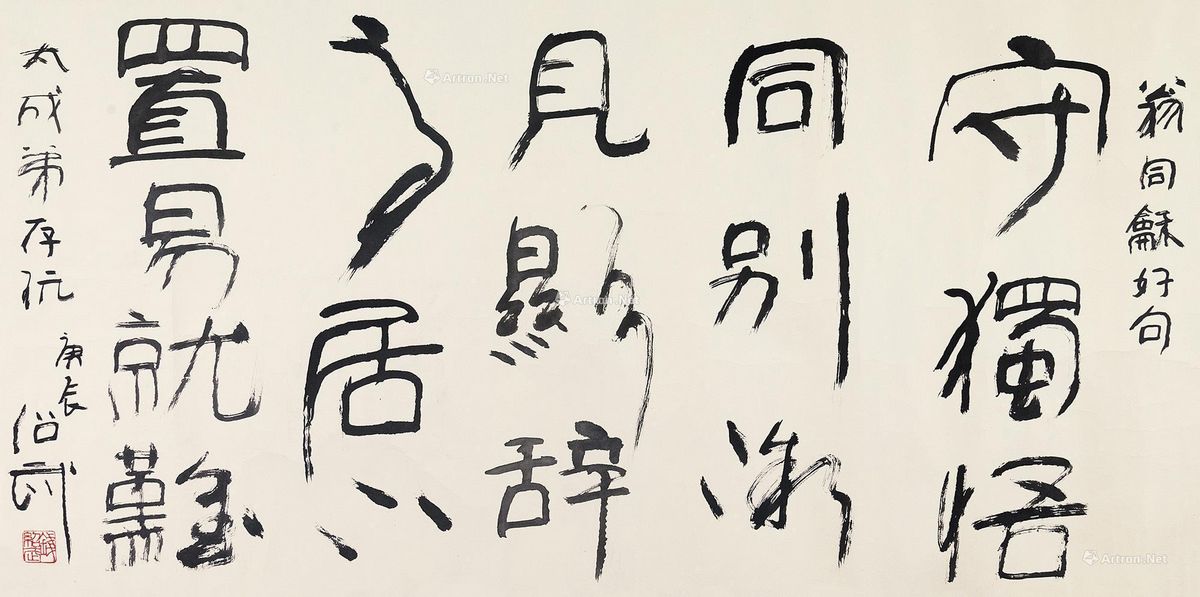 翁同龢好句
守獨悟
同别微
見顯辞
高居下
置易就難
太成弟存玩
庚辰
绍武
Artron.Net
Artron.Net
Artron.Net